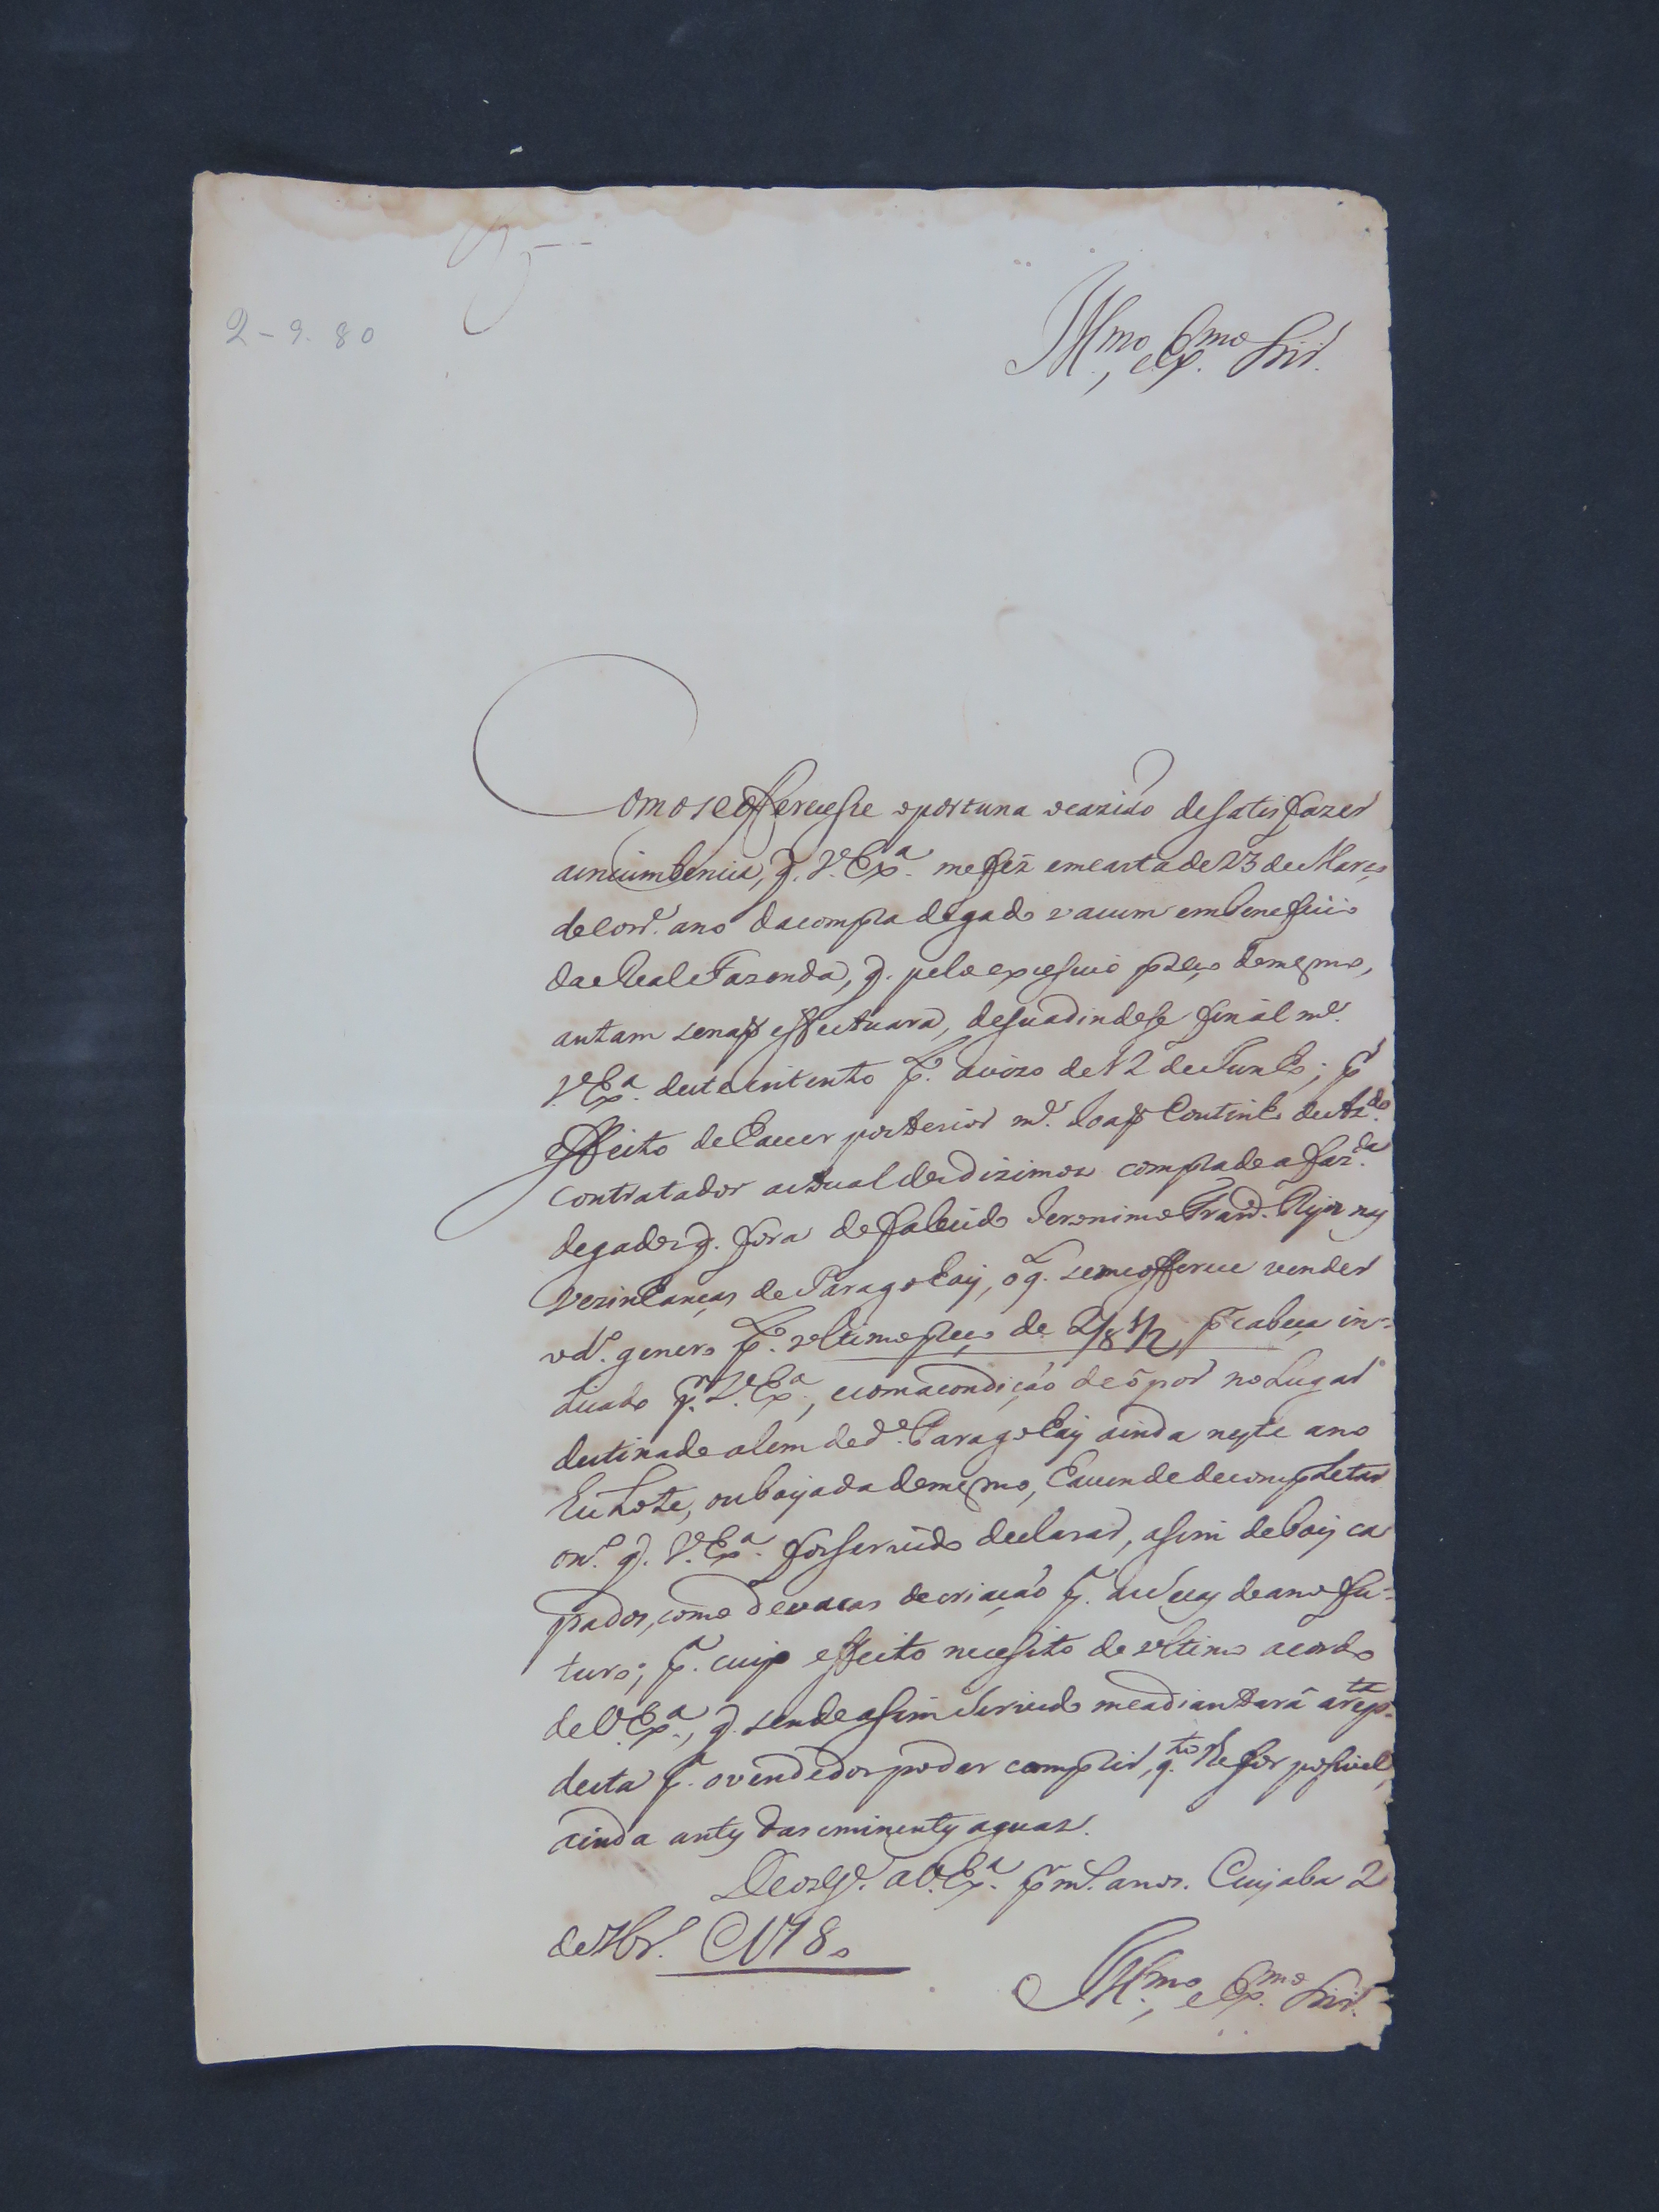 2-9.80
Ill.mo, e Ex.mo Snr.
Como se offerecesse oportuna ocazião de satisfazer
a incumbencia, q. V. Ex.a me fez em carta de 23 de Março
do corr.e ano da compra de gado vacum em beneficio
da Real Fazenda, q. pelo excessivo preço do mesmo,
antam senaõ effectuara, desuadindose finalm.e
V. Ex.a deste intento p. avizo de 12 de Junho; p.r
effeito de haver posteriorm.e Joaõ Coutinho de Az.do
contratador actual dos dizimos comprado a faz.da
de gados q. fora do falecido Jeronimo Frañ. nas
vezinhanças do Paragohay, o q. se me offerece vender
o d.o genero p. ultimo preço de 2/8 1/2 p.r cabeça in-
dicado p.r V. Ex.a, e com a condição de o por no Lugar
destinado alem do d.o Paragohay ainda neste ano
hu Lote, ou boyada do mesmo, havendo de completar
o n.o q. V. Ex.a for servido declarar, asim de boys ca
pados, como de vacas de criação p.a as do ano fu-
turo; p.a cujo effeito necesito do ultimo acordo
de V. Ex.a, q. sendo asim servido me adiantará a resp.ta
desta p.a o vendedor poder comprir, q.to lhe for posivel,
ainda antes das eminentes aguas.
Deos g.e a V. Ex.a p.r m.s anos. Cuyaba 2
de 7br.o
Ill.mo, e Ex.mo Snr.